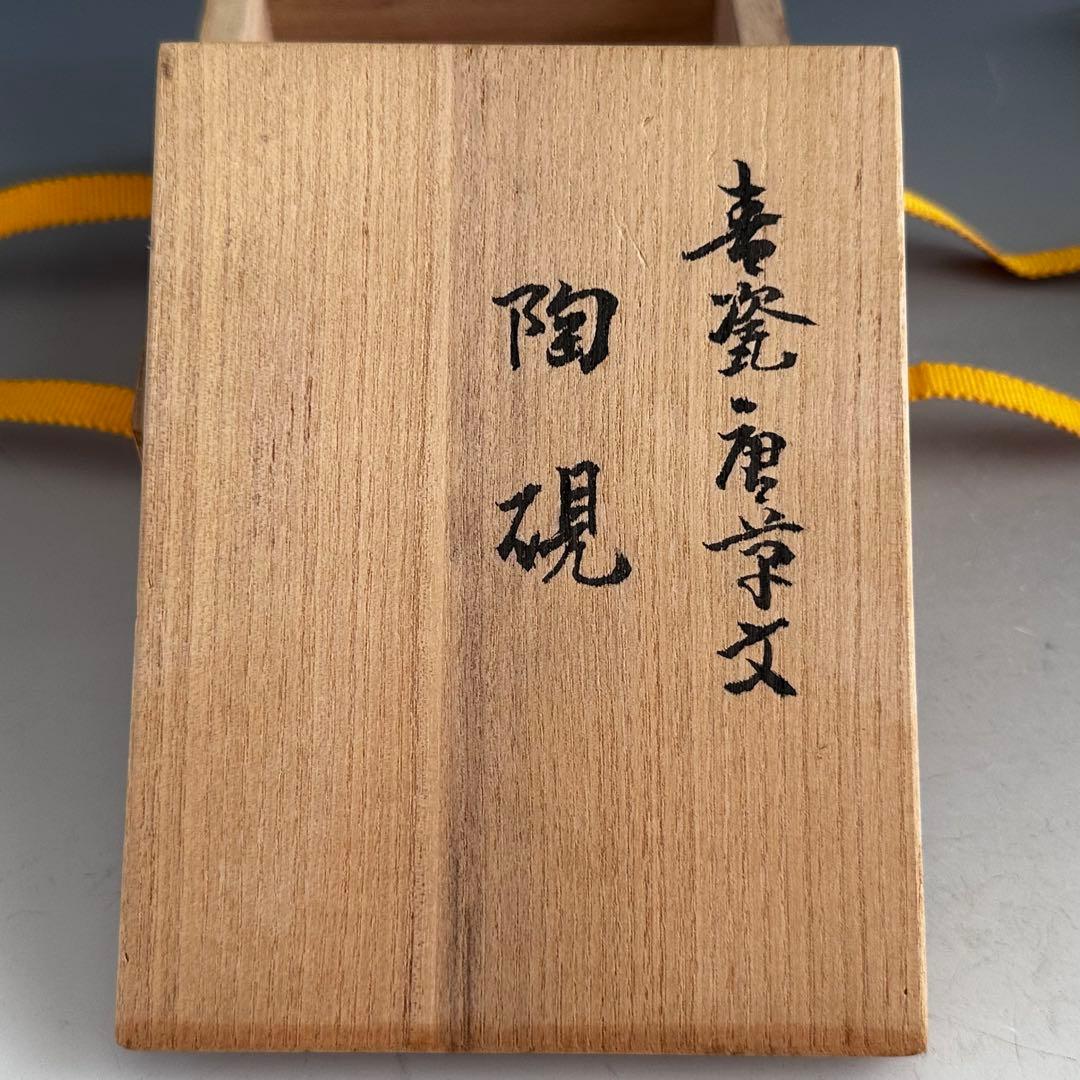 青瓷唐草文
陶硯